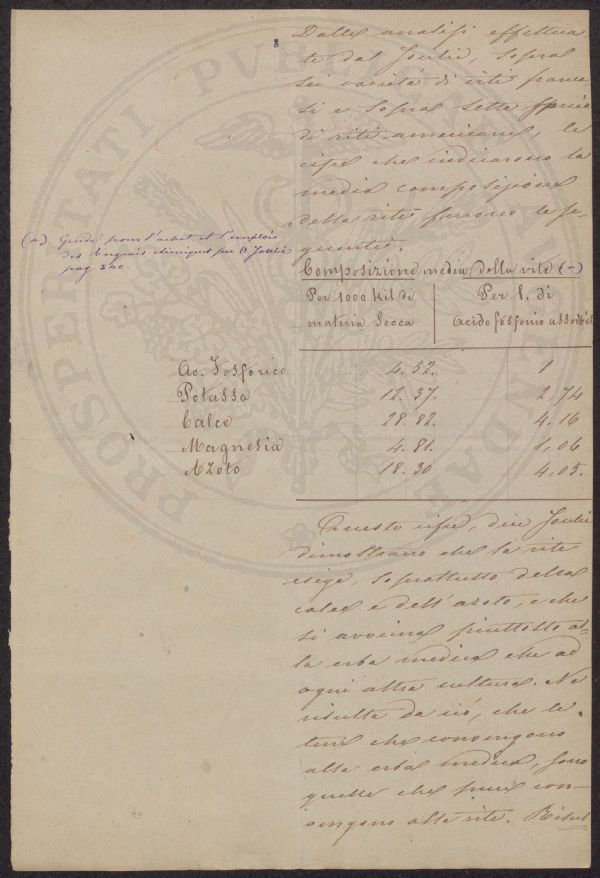 Dalle analisi effettua
te dal Joulie, sopra
sei varietà di viti france
si e sopra sette specie
di viti americane, le
cifre che indicarono la
media composizione
della vite furono le se
guenti.
(a) Guide pour l'achat et l'emploi
des Engrais chimiques par H. Joulie
pag. 340.
Composizione media della vite (a)
Per 1000 Kil di
materia secca
Per 1. di
acido fosforico assorbito
Ac. Fosforico 4. 52. 1
Potassa 12. 37. 2,74
Calce 28. 82. 4,16
Magnesia 4. 81. 1,06
Azoto 18. 30 4,05.
Queste cifre, dice Joulie
dimostrano che la vite
esige, soprattutto della
calce e dell'azoto, e che
si avvicina piuttosto al=
la erba medica che ad
ogni altra cultura. Ne
risulta da ciò, che le
terre che convengono
alla erba medica, sono
quelle che pure con
vengono alla vite. Risul
PROSPERITATI PVBLICAE AVGENDAE